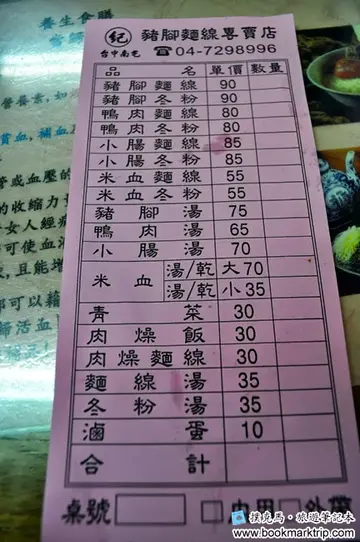 養生食膳
紀 豬腳麵線專賣店
台中南屯 ☎04-7298996
品名 單價 數量
豬腳麵線 90
豬腳冬粉 90
鴨肉麵線 80
鴨肉冬粉 80
小腸麵線 85
小腸冬粉 85
米血麵線 55
米血冬粉 55
豬腳湯 75
鴨肉湯 65
小腸湯 70
米血 湯/乾 大70
湯/乾 小35
青菜 30
肉燥飯 30
肉燥麵線 30
麵線湯 35
冬粉湯 35
滷蛋 10
合計
桌號 □內用□外帶
撲克馬・旅遊筆記本
www.bookmarktrip.com